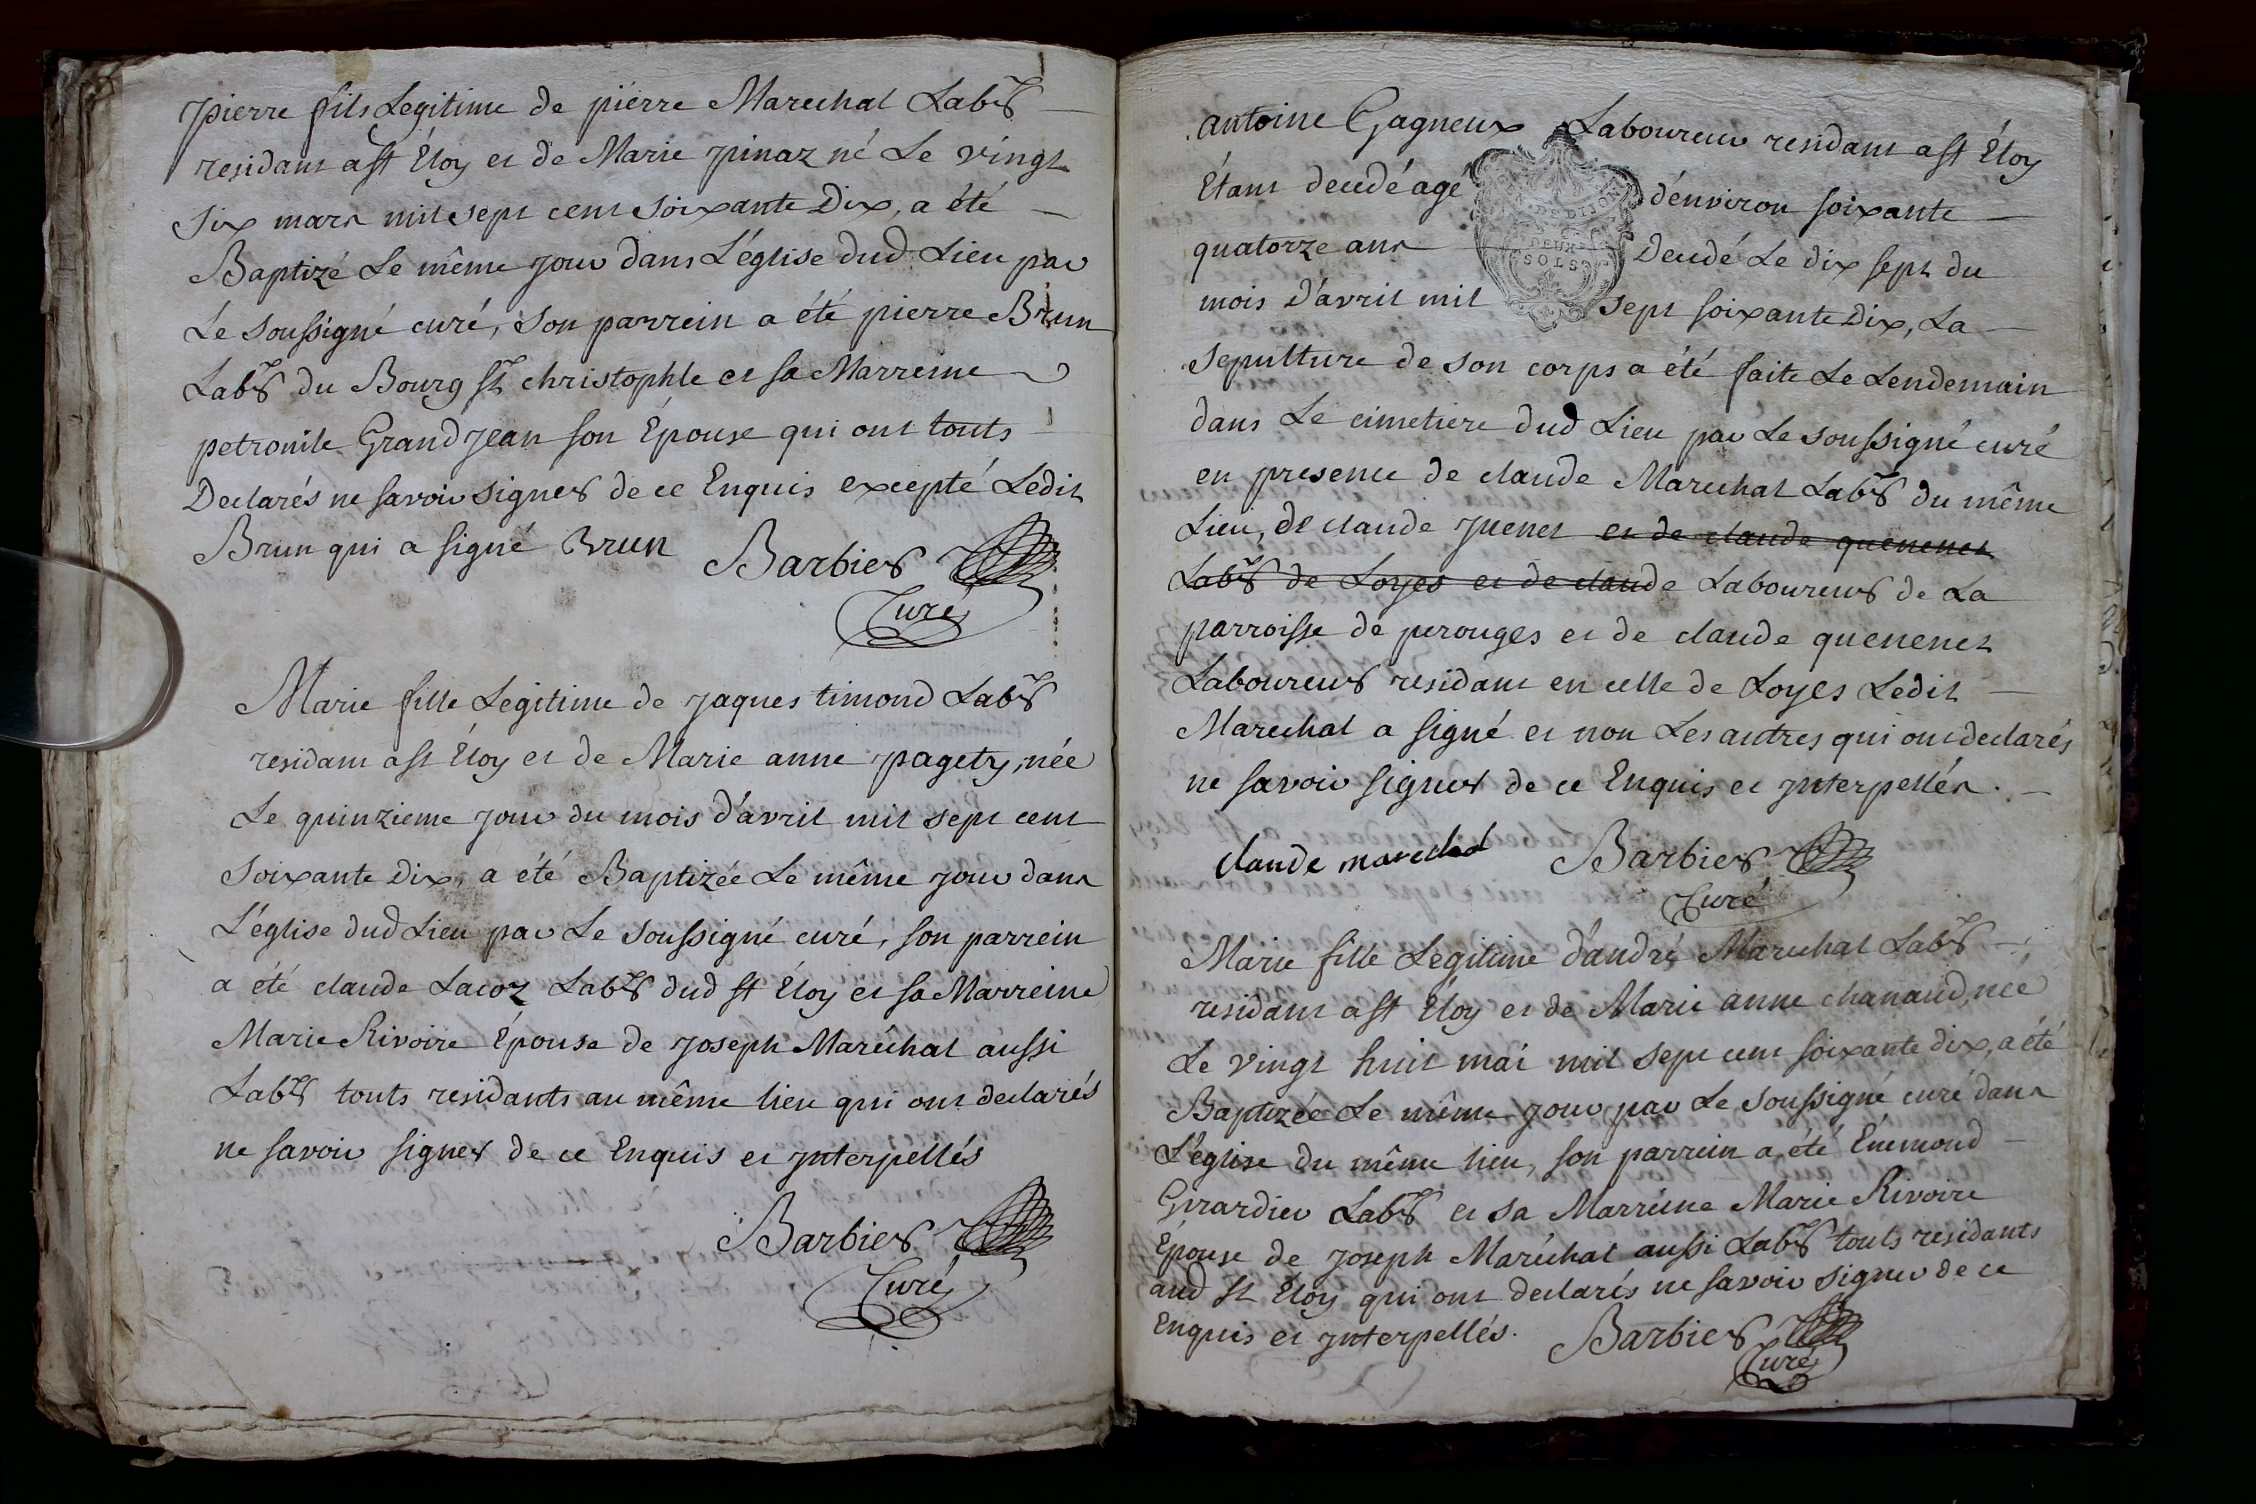 pierre fils Legitime de piérre Marechal Labr
residant a st Éloy et de Marie pinaz né Le vingt
six mars mil sept cent soixante Dix, a été
Baptizé Le même jour dans L'église dud Lieu par
Le soussigné curé, son parrein a été pierre Brun
Labr du Bourg st christophle et sa Marreine
petronile Grand Jean son Épouse qui ont touts
Declarés ne savoir signer de ce Enquis excepté Ledit
Brun qui a signé Brun Barbier
Curé
Marie fille Legitime de Jaques timond Labr
residant a st Éloy et de Marie anne pagety, née
Le quinzieme jour du mois d'avril mil sept cent
soixante Dix, a été Baptizée Le même jour dans
L'église dud Lieu par Le soussigné curé, son parrein
a été claude Lacoz Labr dud st Éloy et sa Marreine
Marie Rivoire Épouse de Joseph Maréchal aussi
Labr touts residants au même lieu qui ont declarés
ne savoir signer de ce Enquis et Interpellés
Barbier
Curé
antoine Gagneux Laboureur residant a st Éloy
Étant decedé agé d'environ soixante
quatorze ans Decedé Le dix sept du
mois D'avril mil sept soixante Dix, La
sepulture de son corps a été faite Le Lendemain
dans Le cimetiere dud Lieu par Le soussigné curé
en presence de claude Marechal Labr du même
Lieu, de claude Juenet et de claude quenenet
Labr de Loyes et de claude Laboureur de La
parroisse de perouges et de claude quenenet
Laboureur residant en celle de Loyes Ledit
Marechal a signé et non Les autres qui ont declarés
ne savoir signer de ce Enquis et Interpellés.
claude marechal Barbier
Curé
Marie fille Legitime d'andré Marechal Labr
residant a st Éloy et de Marie anne chanaud, née
Le vingt huit mai mil sept cent soixante dix, a été
Baptizée Le même jour par Le soussigné curé dans
L'église du même lieu, son parrein a été Énemond
Girardier Labr et sa Marreine Marie Rivoire
Épouse de Joseph Maréchal aussi Labr touts residants
aud st Éloy qui ont declarés ne savoir signer de ce
Enquis et Interpellés. Barbier
Curé
DE DIJON
DEUX
SOLS